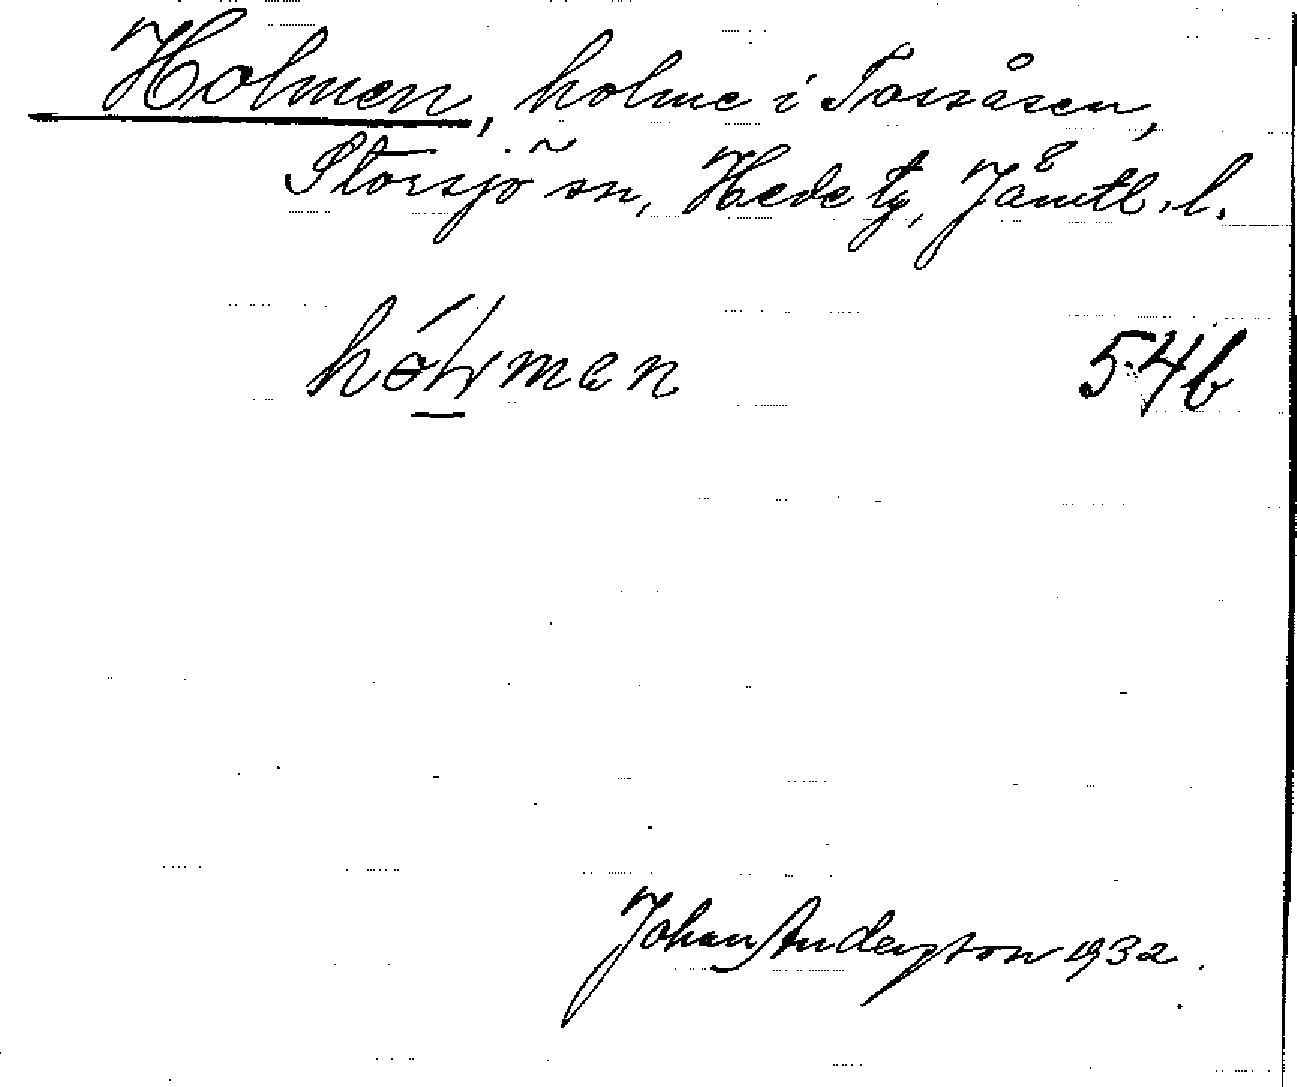 Holmen, holme i Torsåsen,
Storsjö sn, Hede tg, Jämtl. l.
54b
Johan Andersson 1932.